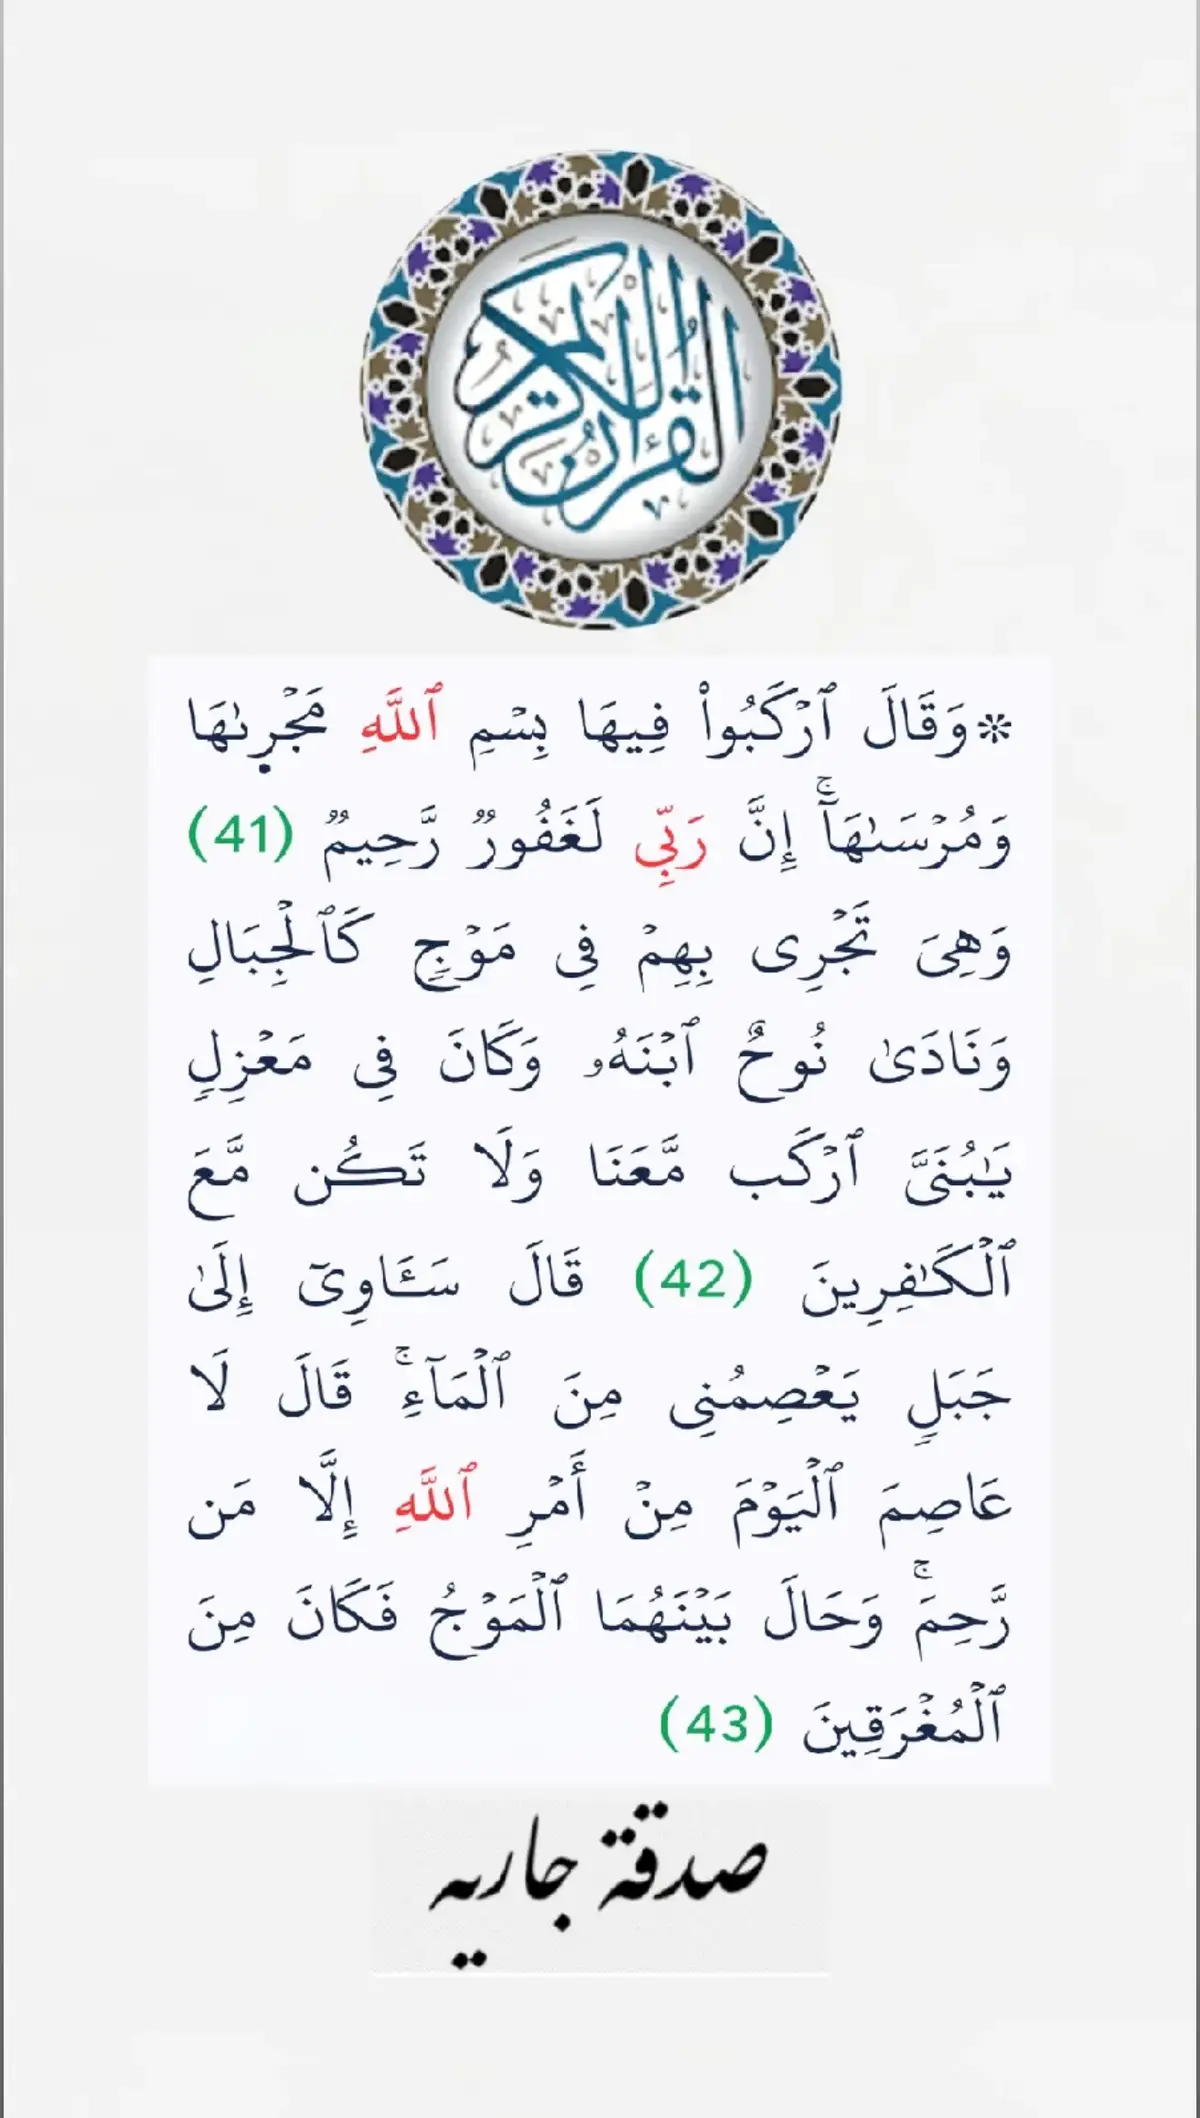 القرآن الكريم
۞وَقَالَ ٱرۡكَبُواْ فِيهَا بِسۡمِ ٱللَّهِ مَجۡرٜىٰهَا
وَمُرۡسَىٰهَآۚ إِنَّ رَبِّي لَغَفُورٞ رَّحِيمٞ (41)
وَهِيَ تَجۡرِي بِهِمۡ فِي مَوۡجٖ كَٱلۡجِبَالِ
وَنَادَىٰ نُوحٌ ٱبۡنَهُۥ وَكَانَ فِي مَعۡزِلٖ
يَٰبُنَيَّ ٱرۡكَب مَّعَنَا وَلَا تَكُن مَّعَ
ٱلۡكَٰفِرِينَ (42) قَالَ سَـَٔاوِيٓ إِلَىٰ
جَبَلٖ يَعۡصِمُنِي مِنَ ٱلۡمَآءِۚ قَالَ لَا
عَاصِمَ ٱلۡيَوۡمَ مِنۡ أَمۡرِ ٱللَّهِ إِلَّا مَن
رَّحِمَۚ وَحَالَ بَيۡنَهُمَا ٱلۡمَوۡجُ فَكَانَ مِنَ
ٱلۡمُغۡرَقِينَ (43)
صدقة جاريه